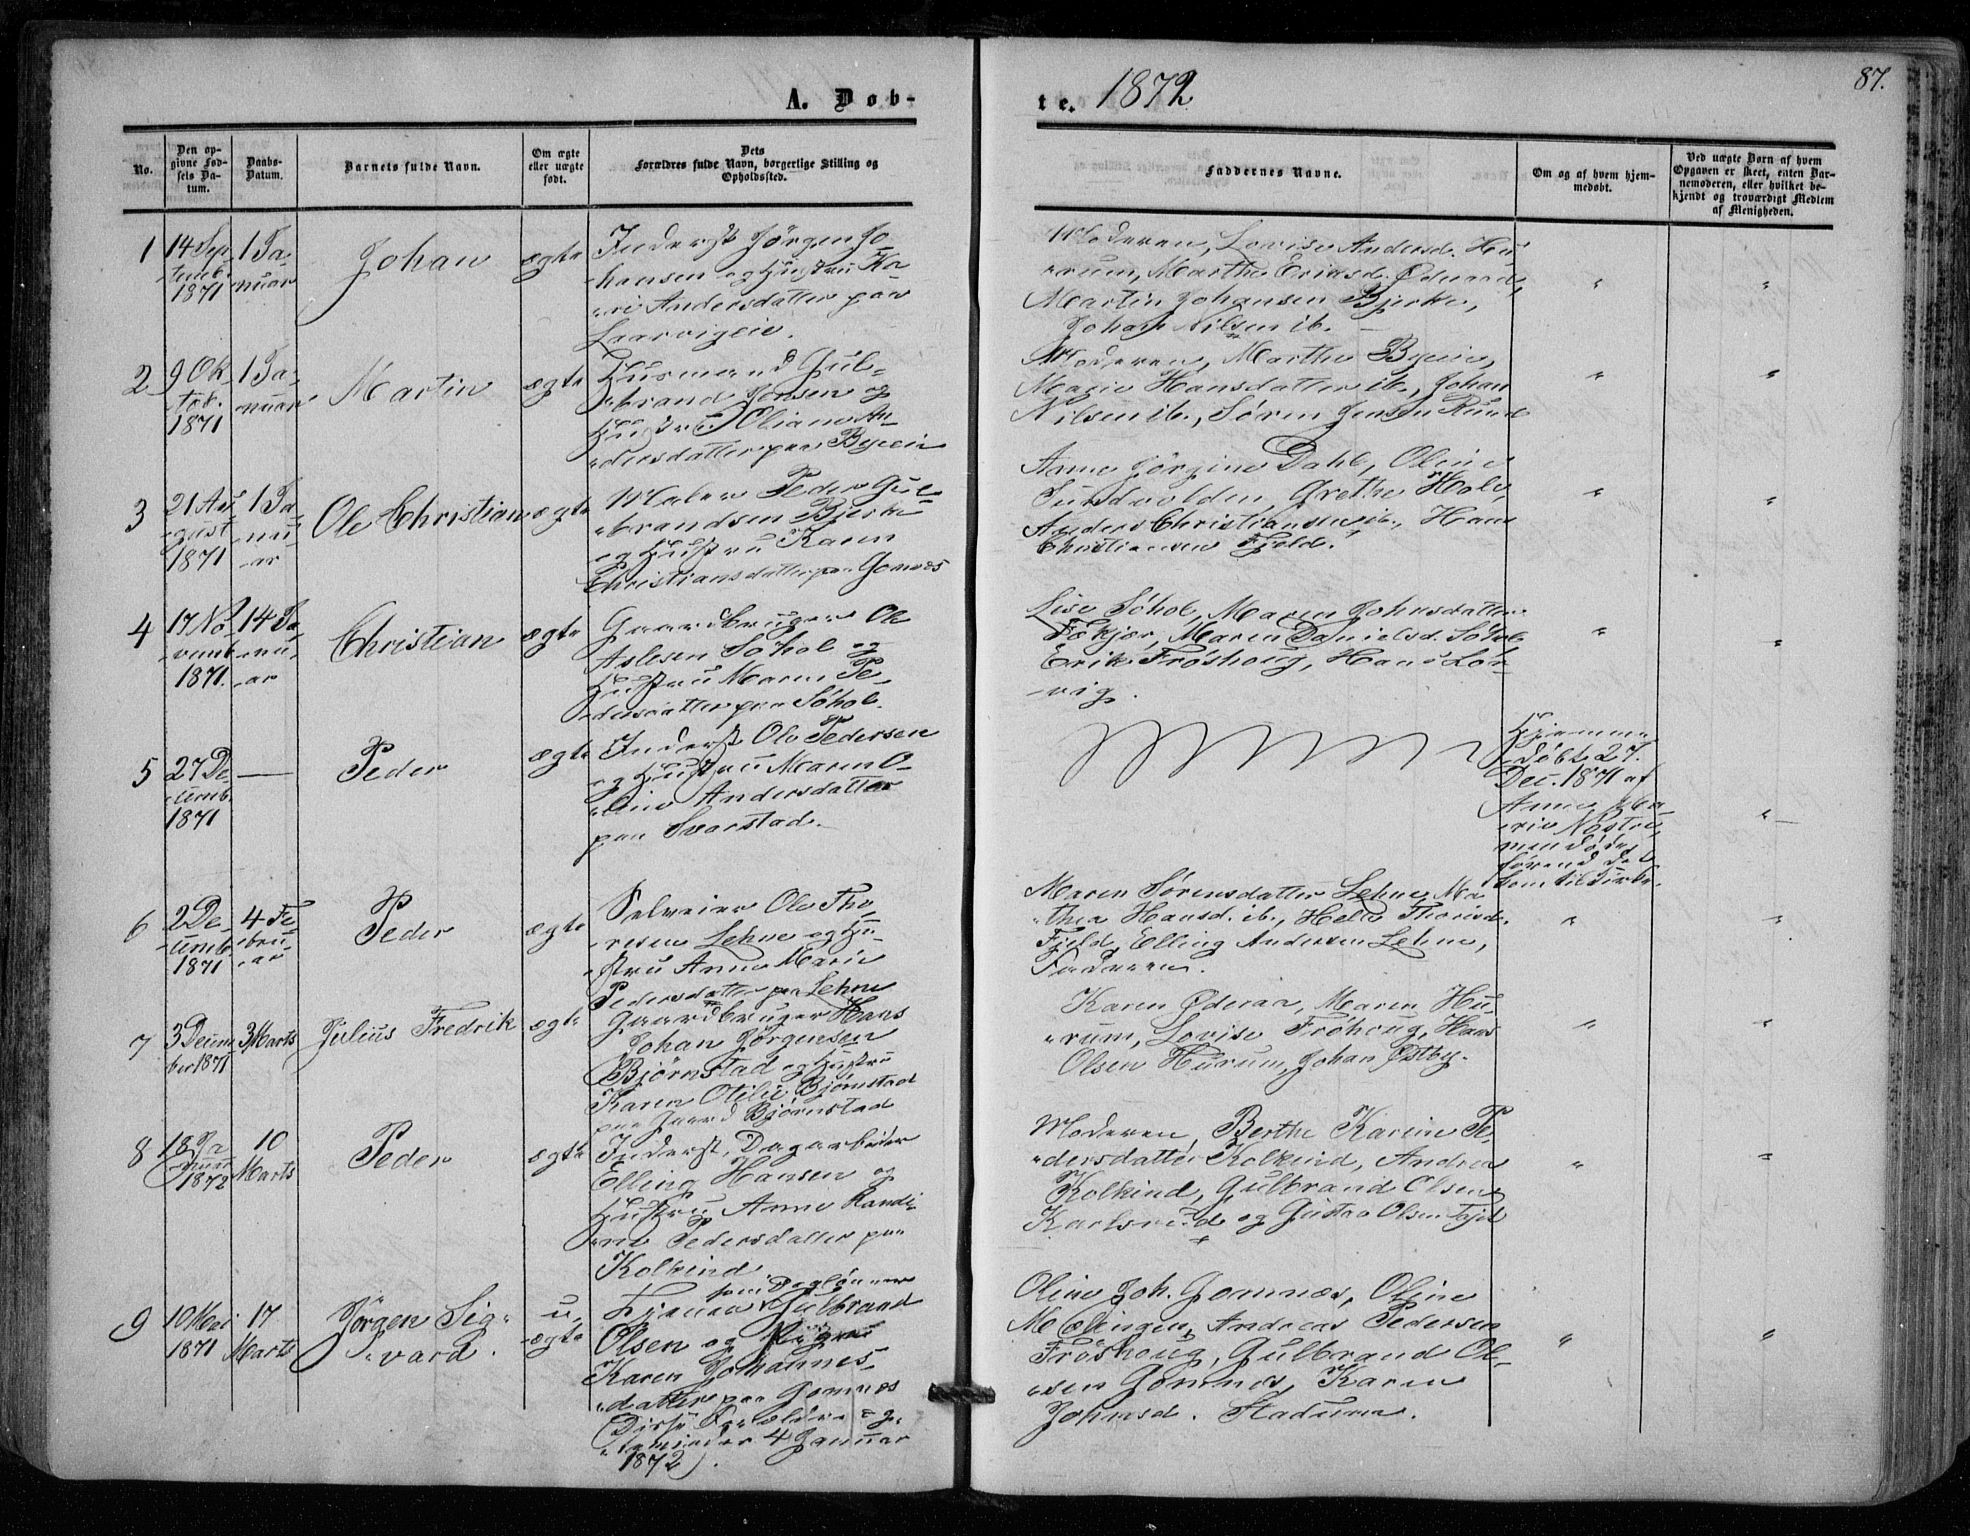 87.
A. Døb-
te. 1872
No.
Den op-
givne Fød-
sels Da-
tum.
Daabs-
Datum.
Barnets fulde Navn.
Om ægte
eller uægte
født.
Dets
Forældres fulde Navn, borgerlige Stilling og
Opholdssted.
Faddernes Navne.
Om og af hvem hjem-
medøbt.
Ved uægte Børn af hvem
Opgaven er skeet, enten Bar-
nemoderen, eller hvilket be-
kjendt og troværdigt Medlem
af Menigheden.
1
14 Sep-
temb.
1871
1 Ja-
nuar
Johan
ægte
Inderst Jørgen Jo-
hansen og Hustru Ka-
ri Andersdatter paa
Laarvigeie.
Moderen, Lovise Andersd. Hu-
rum, Marthe Eriksd.
Martin Johansen Bjerke,
Johan Nilsen ib.
"
"
2
9 Ok-
tob.
1871
1 Ja-
nuar
Martin
ægte
Husmand Gul-
brand Jonsen og
Hustru Oliane An-
dersdatter paa Byeie
Moderen, Marthe Byeie,
Marie Hansdatter ib., Johan
Nilsen ib., Søren Jensen Rund
"
"
3
21 Au-
gust
1871
1 Ja-
nu-
ar
Ole Christian
ægte
Maler Peder Gul-
brandsen Bjerke
og Hustru Karen
Christiansdatter paa Gomnæs
Anne Jørgine Dahl, Oline
Sundvolden, Grethe Hole,
Anders Christiansen ib., Hans
Christiansen Fjeld.
"
"
4
17 No-
vemb.
1871.
14 Ja-
nu-
ar
Christian
ægte
Gaardbruger Ole
Aslesen Søhol og
Hustru Maren Pe-
dersdatter paa Søhol.
Lise Søhol, Maren Johnsdatter
Fekjær, Maren Danielsd. Søhol
Erik Frøshoug, Hans Lor-
vig.
"
"
5
27 De-
cemb.
1871
—
Peder
ægte
Inderst Ole Pedersen
og Hustru Maren O-
line Andersdatter
paa Svarstad.
Hjemme-
døbt 27.
Dec. 1871 af
Anne Ma-
rie
men døde
førend det
kom til Kirke.
"
6
2 De-
cemb.
1871
4 Fe-
bru-
ar
Peder
ægte
Selveier Ole Tho-
resen Lehne og Hu-
stru Anne Marie
Pedersdatter paa Lehne
Maren Sørensdatter Lehne, Ma-
thea Hansd. ib., Helle Thorisd.
Fjeld, Elling Andersen Lehne,
Faderen.
"
"
7
3 Decem-
ber 1871
3 Marts
Julius Fredrik
ægte
Gaardbruger Hans
Johan Jørgensen
Bjørnstad og Hustru
Karen Otilie Bjørnstad
paa Gaard Bjørnstad
Karen Øderaa, Maren Hu-
rum, Lovise Frøhoug, Hans
Olsen Hurum, Johan Østby.
"
"
8
18 Ja-
nuar
1872
10
Marts
Peder
ægte
Inderst, Dagarbeider
Elling Hansen og
Hustru Anne Randi-
ne Pedersdatter paa
Kolkind
Moderen, Berthe Karine Pe-
dersdatter Kolkind, Andrea
Kolkind, Gulbrand Olsen
Karlsrud og Gustav Olsen
"
"
9
10 Mai
1871
17
Marts
Jørgen Sig-
vard.
u-
ægte
Gulbrand
Olsen og Pigen
Karen Johannes-
datter paa Gomnæs
(Disse Forældre eg-
tevieder 4 Januar
1872).
Oline Joh. Gomnæs, Oline
Andreas Pedersen
Frøshoug, Gulbrand Ol-
sen Gomnæs, Karen
Johnsd. Stadum.
"
"